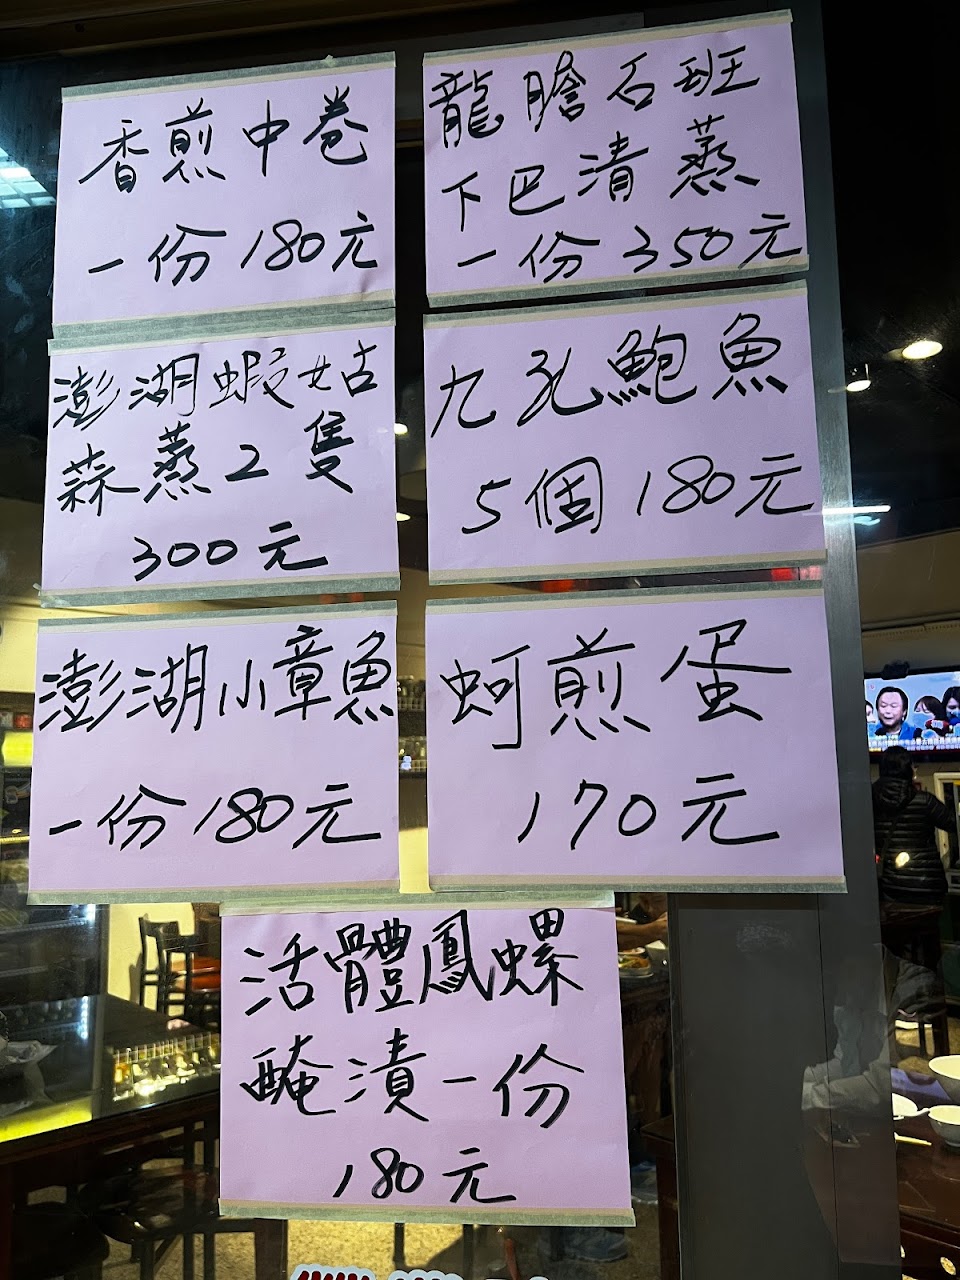 香煎中卷
一份180元
龍膽石班
下巴清蒸
一份350元
澎湖蝦姑
蒜蒸2隻
300元
九孔鮑魚
5個180元
澎湖小章魚
一份180元
蚵煎蛋
170元
活體鳳螺
醃漬一份
180元